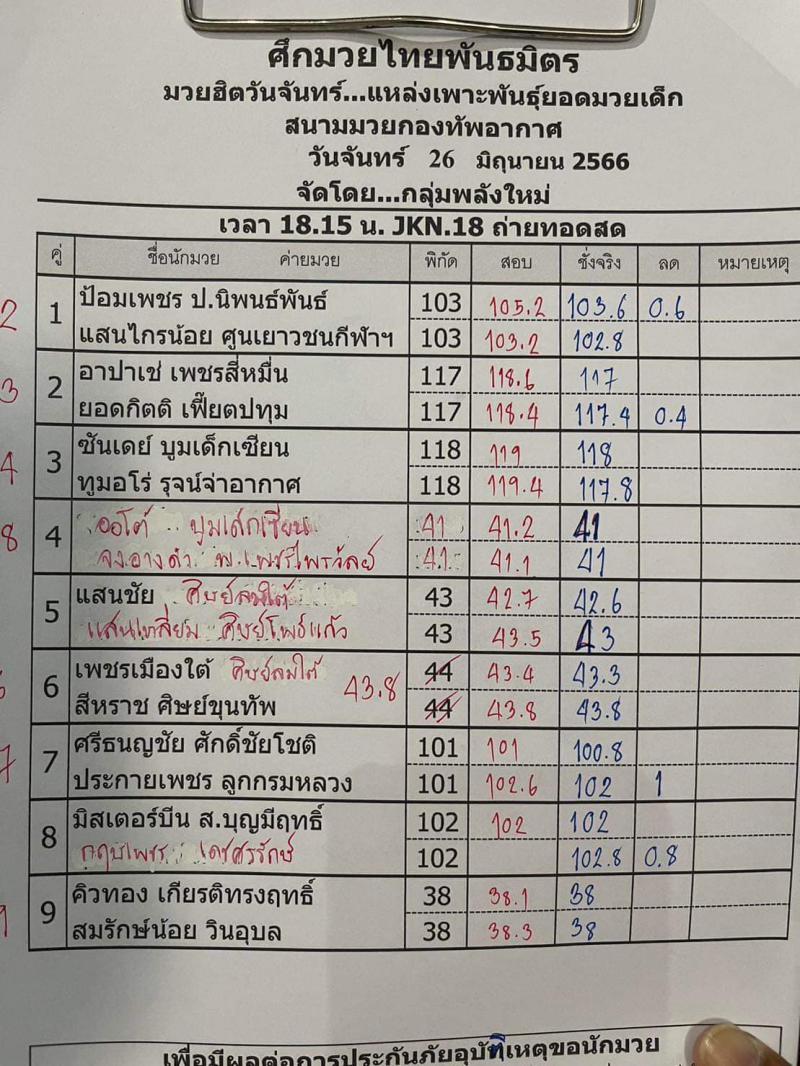 ศึกมวยไทยพันธมิตร
มวยฮิตวันจันทร์...แหล่งเพาะพันธุ์ยอดมวยเด็ก
สนามมวยกองทัพอากาศ
วันจันทร์ 26 มิถุนายน 2566
จัดโดย...กลุ่มพลังใหม่
เวลา 18.15 น. JKN.18 ถ่ายทอดสด
คู่ ชื่อนักมวย ค่ายมวย พิกัด สอบ ชั่งจริง ลด หมายเหตุ
2 1 ป้อมเพชร ป.นิพนธ์พันธ์ 103 105.2 103.6 0.6
แสนไกรน้อย ศูนเยาวชนกีฬาฯ 103 103.2 102.8
3 2 อาปาเช่ เพชรสี่หมื่น 117 118.6 117
ยอดกิตติ เฟี๊ยตปทุม 117 118.4 117.4 0.4
4 3 ซันเดย์ บูมเด็กเซียน 118 119 118
ทูมอโร่ รุจน์จ่าอากาศ 118 119.4 117.8
8 4 ออโต้ บูมเด็กเซียน 41 41.2 41
จงอางดำ พ.เพชรไพรวัลย์ 41 41.1 41
5 แสนชัย ศิษย์ลมใต้ 43 42.7 42.6
แสนเหลี่ยม ศิษย์โพธิ์แก้ว 43 43.5 43
6 เพชรเมืองใต้ ศิษย์ลมใต้ 43.8 44 43.4 43.3
สีหราช ศิษย์ขุนทัพ 44 43.8 43.8
7 7 ศรีธนญชัย ศักดิ์ชัยโชติ 101 101 100.8
ประกายเพชร ลูกกรมหลวง 101 102.6 102 1
8 มิสเตอร์บีน ส.บุญมีฤทธิ์ 102 102 102
กฤษเพชร เดชศรรักษ์ 102 102.8 0.8
9 คิวทอง เกียรติทรงฤทธิ์ 38 38.1 38
สมรักษ์น้อย วินอุบล 38 38.3 38
เพื่อมีผลต่อการประกันภัยอุบัติเหตุของนักมวย